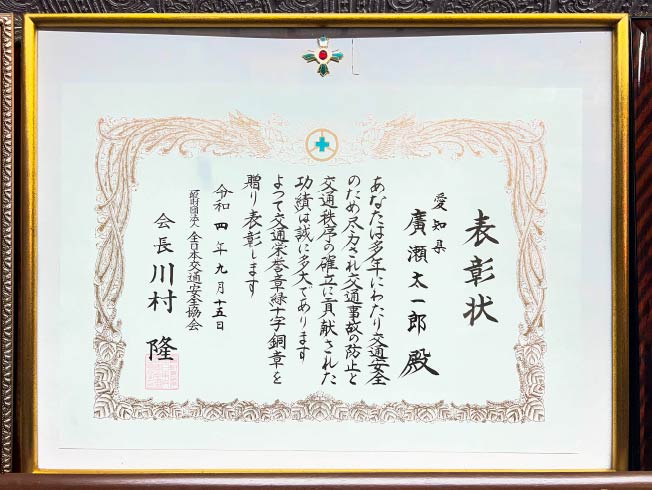 表彰状
愛知県
廣瀬太一郎殿
あなたは多年にわたり交通安全
のため尽力され交通事故の防止と
交通秩序の確立に貢献された
功績は誠に多大であります
よつて交通栄誉章緑十字銅章を
贈り表彰します
令和四年九月十五日
一般財団法人全日本交通安全協会
会長川村隆